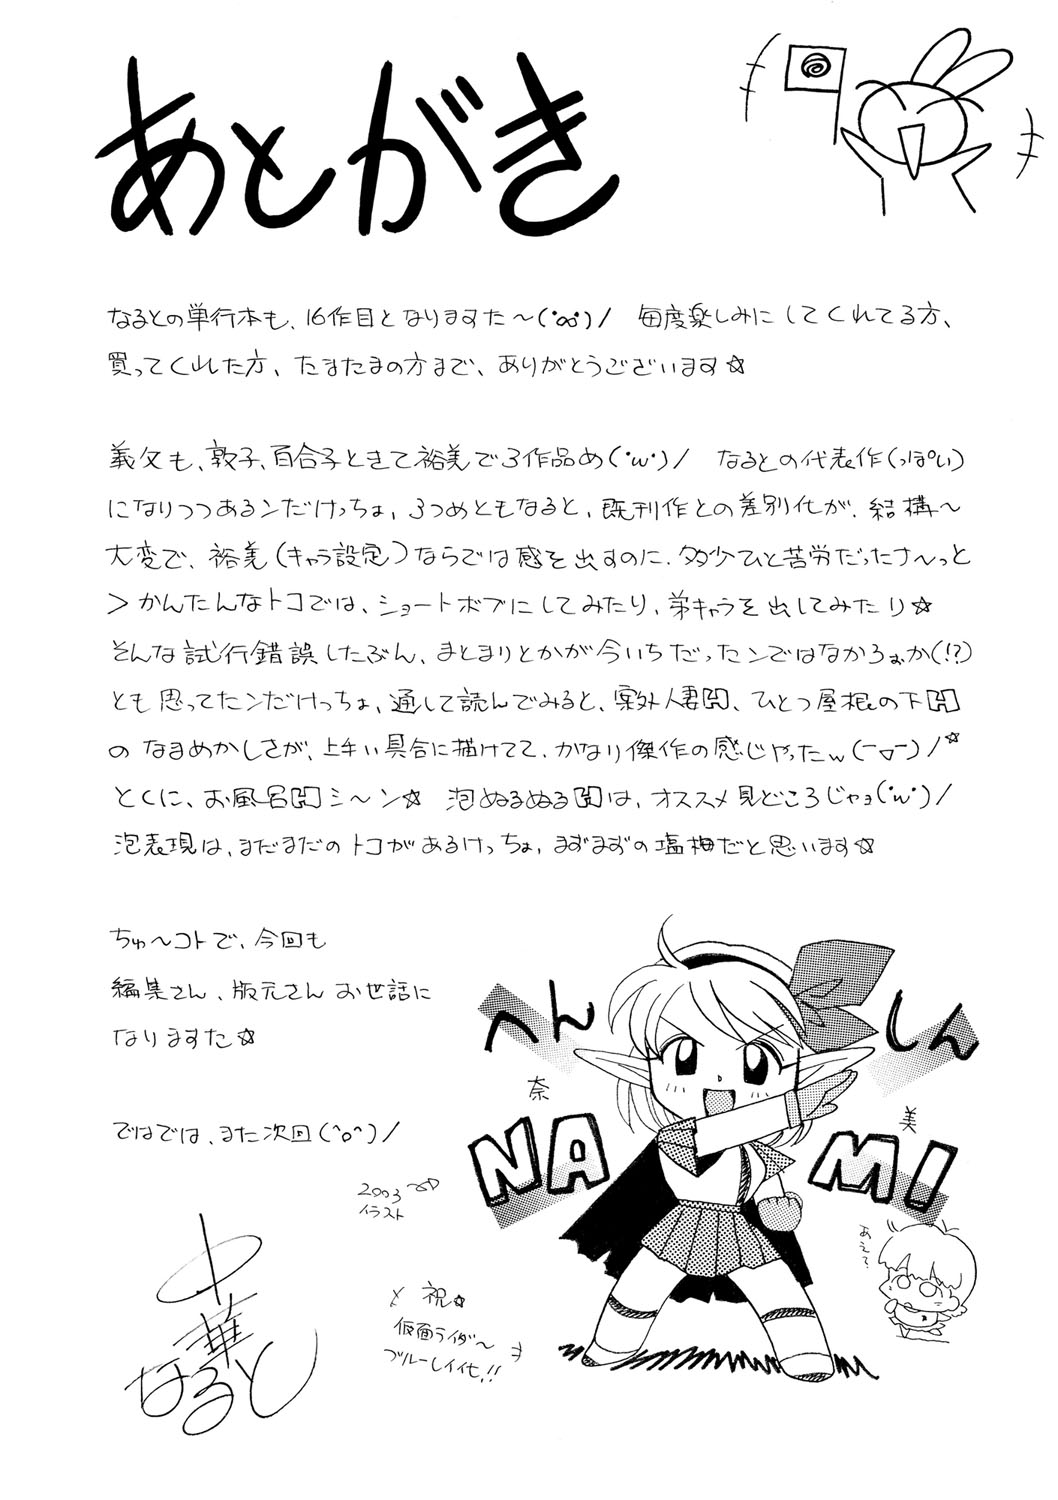 あとがき
なるとの単行本も、16作目となりますた～(･∞･)/　毎度楽しみにしてくれてる方、
買ってくれた方、たまたまの方まで、ありがとうございます☆
義父も、敦子、百合子ときて裕美で3作品め(･w･)/　なるとの代表作(っぽい)
になりつつあるンだけっちょ、3つめともなると、既刊作との差別化が、結構～
大変で、裕美(キャラ設定)ならでは感を出すのに、多少ひと苦労だったナ～っと
＞かんたんなトコでは、ショートボブにしてみたり、弟キャラを出してみたり☆
そんな試行錯誤したぶん、まとまりとかが今いちだったンではなかろぉか(!?)
とも思ってたンだけっちょ、通して読んでみると、案外人妻H、ひとつ屋根の下H
のなまめかしさが、上手い具合に描けてて、かなり傑作の感じやったw(￣▽￣)/☆
とくに、お風呂Hシ～ン☆　泡ぬるぬるHは、オススメ見どころじゃョ(･w･)/
泡表現は、まだまだのトコがあるけっちょ、まずまずの塩梅だと思います☆
ちゅ～コトで、今回も
編集さん、版元さんお世話に
なりますた☆
ではでは、また次回(^o^)/
へんしん
奈美
NAMI
あえて?
2003
イラスト
祝☆
仮面ライダ～
ブルーレイ化!!
中華なると